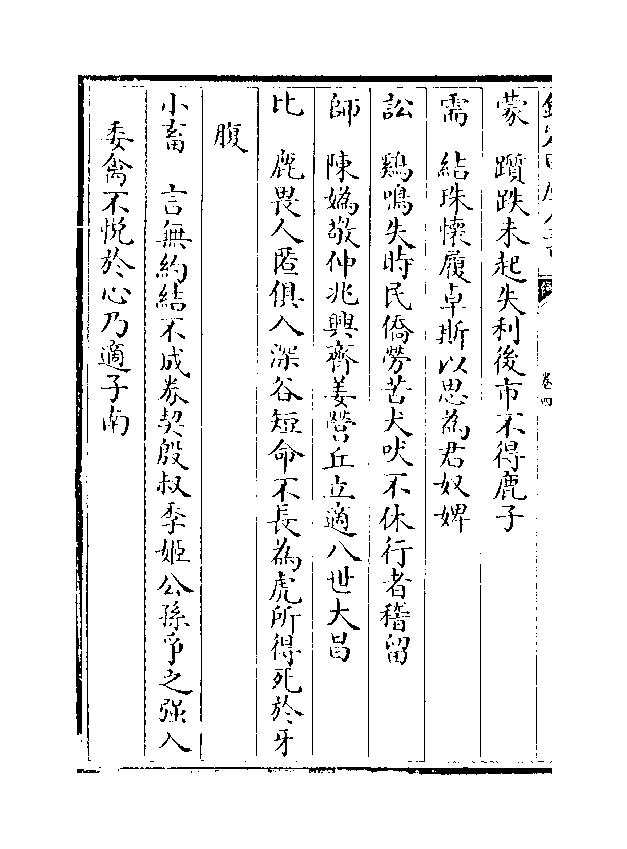 卷四
蒙 躓跌未起失利後市不得鹿子
需 結珠懷履卓斯以思為君奴婢
訟 鷄鳴失時民僑勞苦犬吠不休行者稽留
師 陳媯敬仲兆興齊姜營丘立適八世大昌
比 鹿畏人匿俱入深谷短命不長為虎所得死於牙
腹
小畜 言無約結不成券契殷叔季姬公孫爭之强入
委禽不悅於心乃適子南